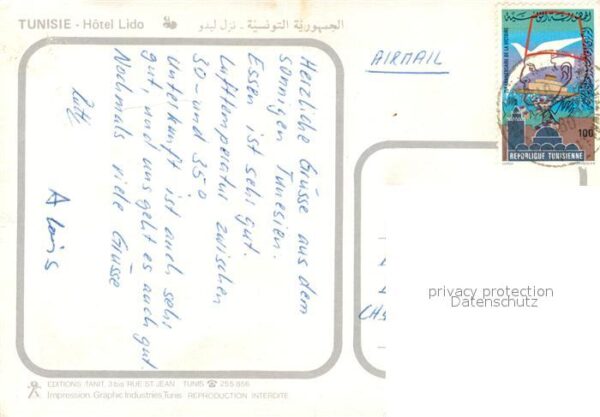 TUNISIE - Hôtel Lido
الجمهورية التونسية - نزل ليدو
AIRMAIL
REPUBLIQUE TUNISIENNE
100
Herzliche Grüsse aus dem
sonnigen Tunesien.
Essen ist sehr gut.
Lufttemperatur zwischen
30- und 35°
Unterkunft ist auch sehr
gut, und uns geht es auch gut.
Nochmals viele Grüsse
Ruth
Alois
privacy protection
Datenschutz
EDITIONS TANIT, 3 bis RUE ST JEAN TUNIS ☎ 255 856
Impression Graphic Industries Tunis REPRODUCTION INTERDITE